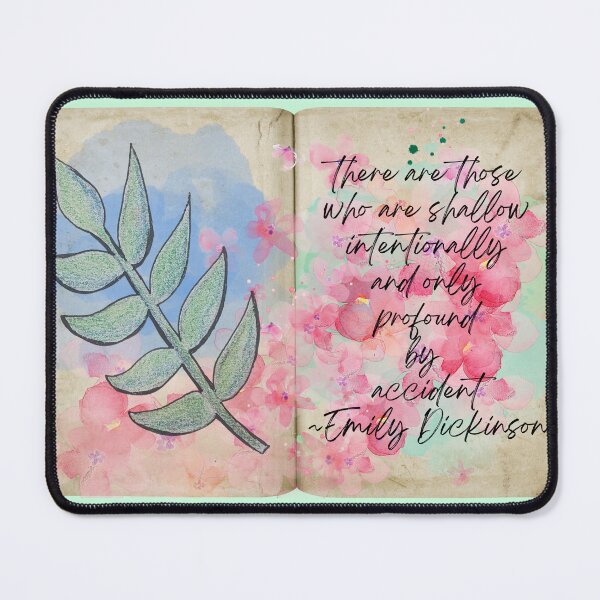 there are those
who are shallow
intentionally
and only
profound
by
accident
~Emily Dickinson